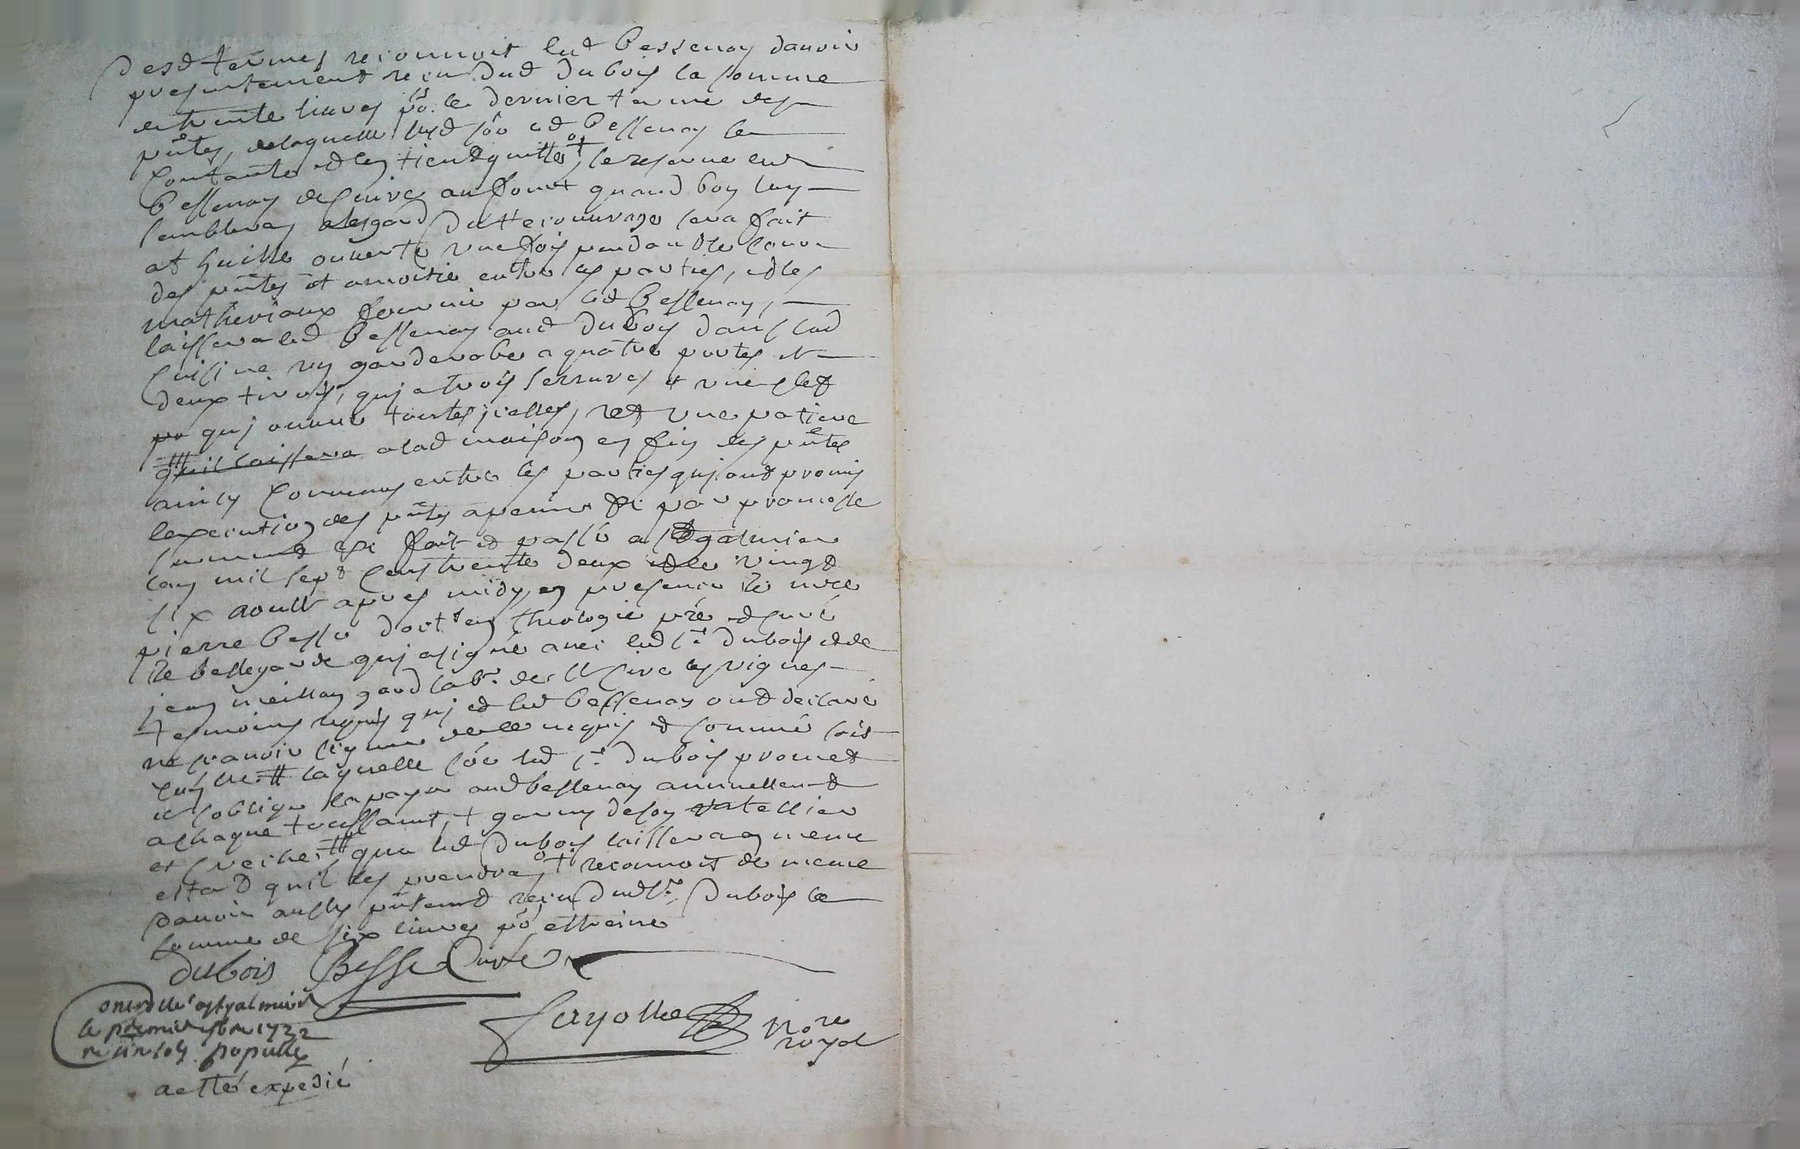 Desd termes reconnoit led bessenay davoir
presentement receu dud dubois la somme
de trente livres po. le dernier terme des
pntes, de laquelle led bessenay le
contante et len tient quitte, le reserve led
bessenay de suivre au fourt quand bon luy
semblera a legard du recouvrage sera fait
at huille ouverte une fois pendant le cours
des pntes et a moitie entre les parties, et les
matheriaux fournir par led bessenay,
laissera led bessenay aud dubois dans lad
cuisine un garderobe a quatre portes et
deux tirois, qui a trois serrures et une clef
qui ouvre toutes jcelles, et une patiere
quil laissera a lad maison en fin des pntes
ainsy convenu entre les parties qui ont promis
lexecution des pntes a peine & par promesse
serment & fait et passé a St galmier
lan mil sept cent trente deux et le vingt
six aoust apres midy en presence de mre
pierre besse doctr en theologie ptre et curé
de bellegarde qui a signé avec led sr dubois et de
jean labr. de St cire les vignes
temoins requis qui et led bessenay ont declaré
ne scavoir signer de ce requis et sommé
laquelle led sr dubois promet
et soblige payer aud bessenay annuellement
a chaque toussaint, + garny de son ratellier
et creche # que led dubois laissera en meme
estat quil les prendra, + reconnoit de meme
davoir aussy pntement receu dud sr. dubois la
somme de six livres po etreine
dubois Besse Curé
Fayolle nore
royal
controllé a St galmier
le premier 7bre 1732
r six sols
a etté expedié